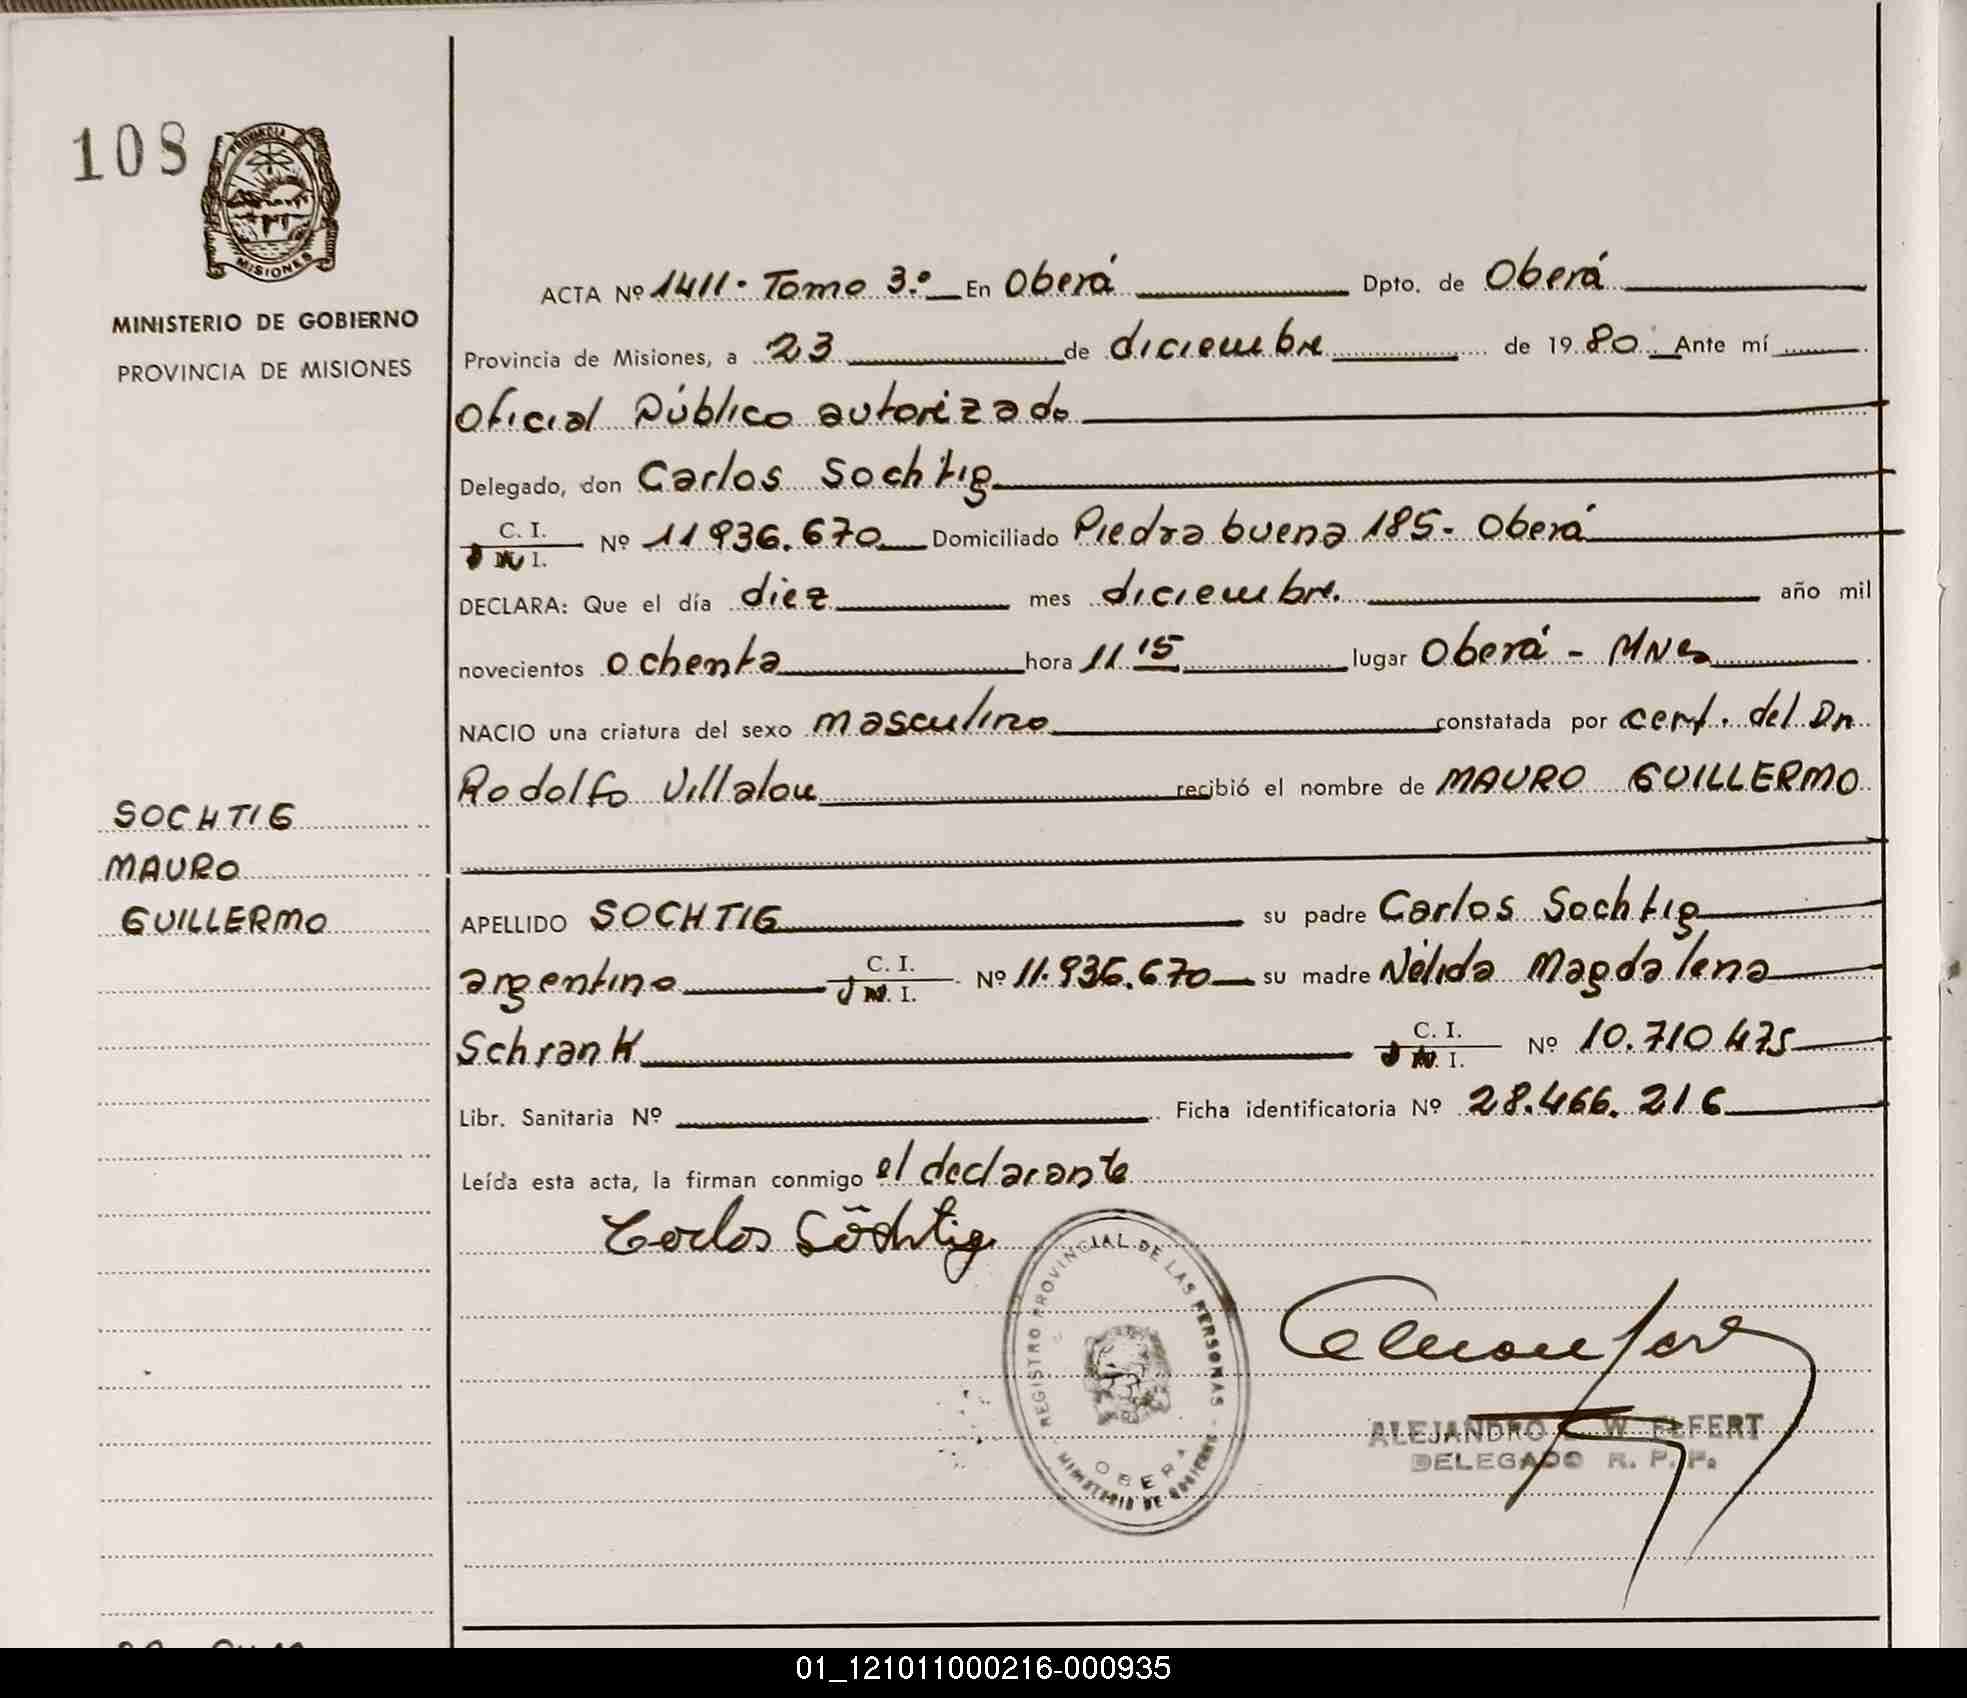 108
PROVINCIA
MISIONES
MINISTERIO DE GOBIERNO
PROVINCIA DE MISIONES
SOCHTIG
MAURO
GUILLERMO
ACTA Nº 1411 - Tomo 3.º En Oberá Dpto. de Oberá
Provincia de Misiones, a 23 de diciembre de 1980 Ante mí
Oficial Público autorizado
Delegado, don Carlos Sochtig
C. I. Nº 11.936.670 Domiciliado Piedra buena 185 - Oberá
DECLARA: Que el día diez mes diciembre. año mil
novecientos ochenta hora 11 15 lugar Oberá - MNes
NACIO una criatura del sexo masculino constatada por cert. del Dr
Rodolfo Villalou recibió el nombre de MAURO GUILLERMO
APELLIDO SOCHTIG su padre Carlos Sochtig
argentino C. I. Nº 11.936.670 su madre Nélida Magdalena
Schrank C. I. Nº 10.710.475
Libr. Sanitaria Nº Ficha identificatoria Nº 28.466.216
Leída esta acta, la firman conmigo el declarante
Carlos Söchtig
REGISTRO PROVINCIAL DE LAS PERSONAS
OBERA
MINISTERIO DE GOBIERNO
ALEJANDRO W ELFERT
DELEGADO R. P. P.
01_121011000216-000935